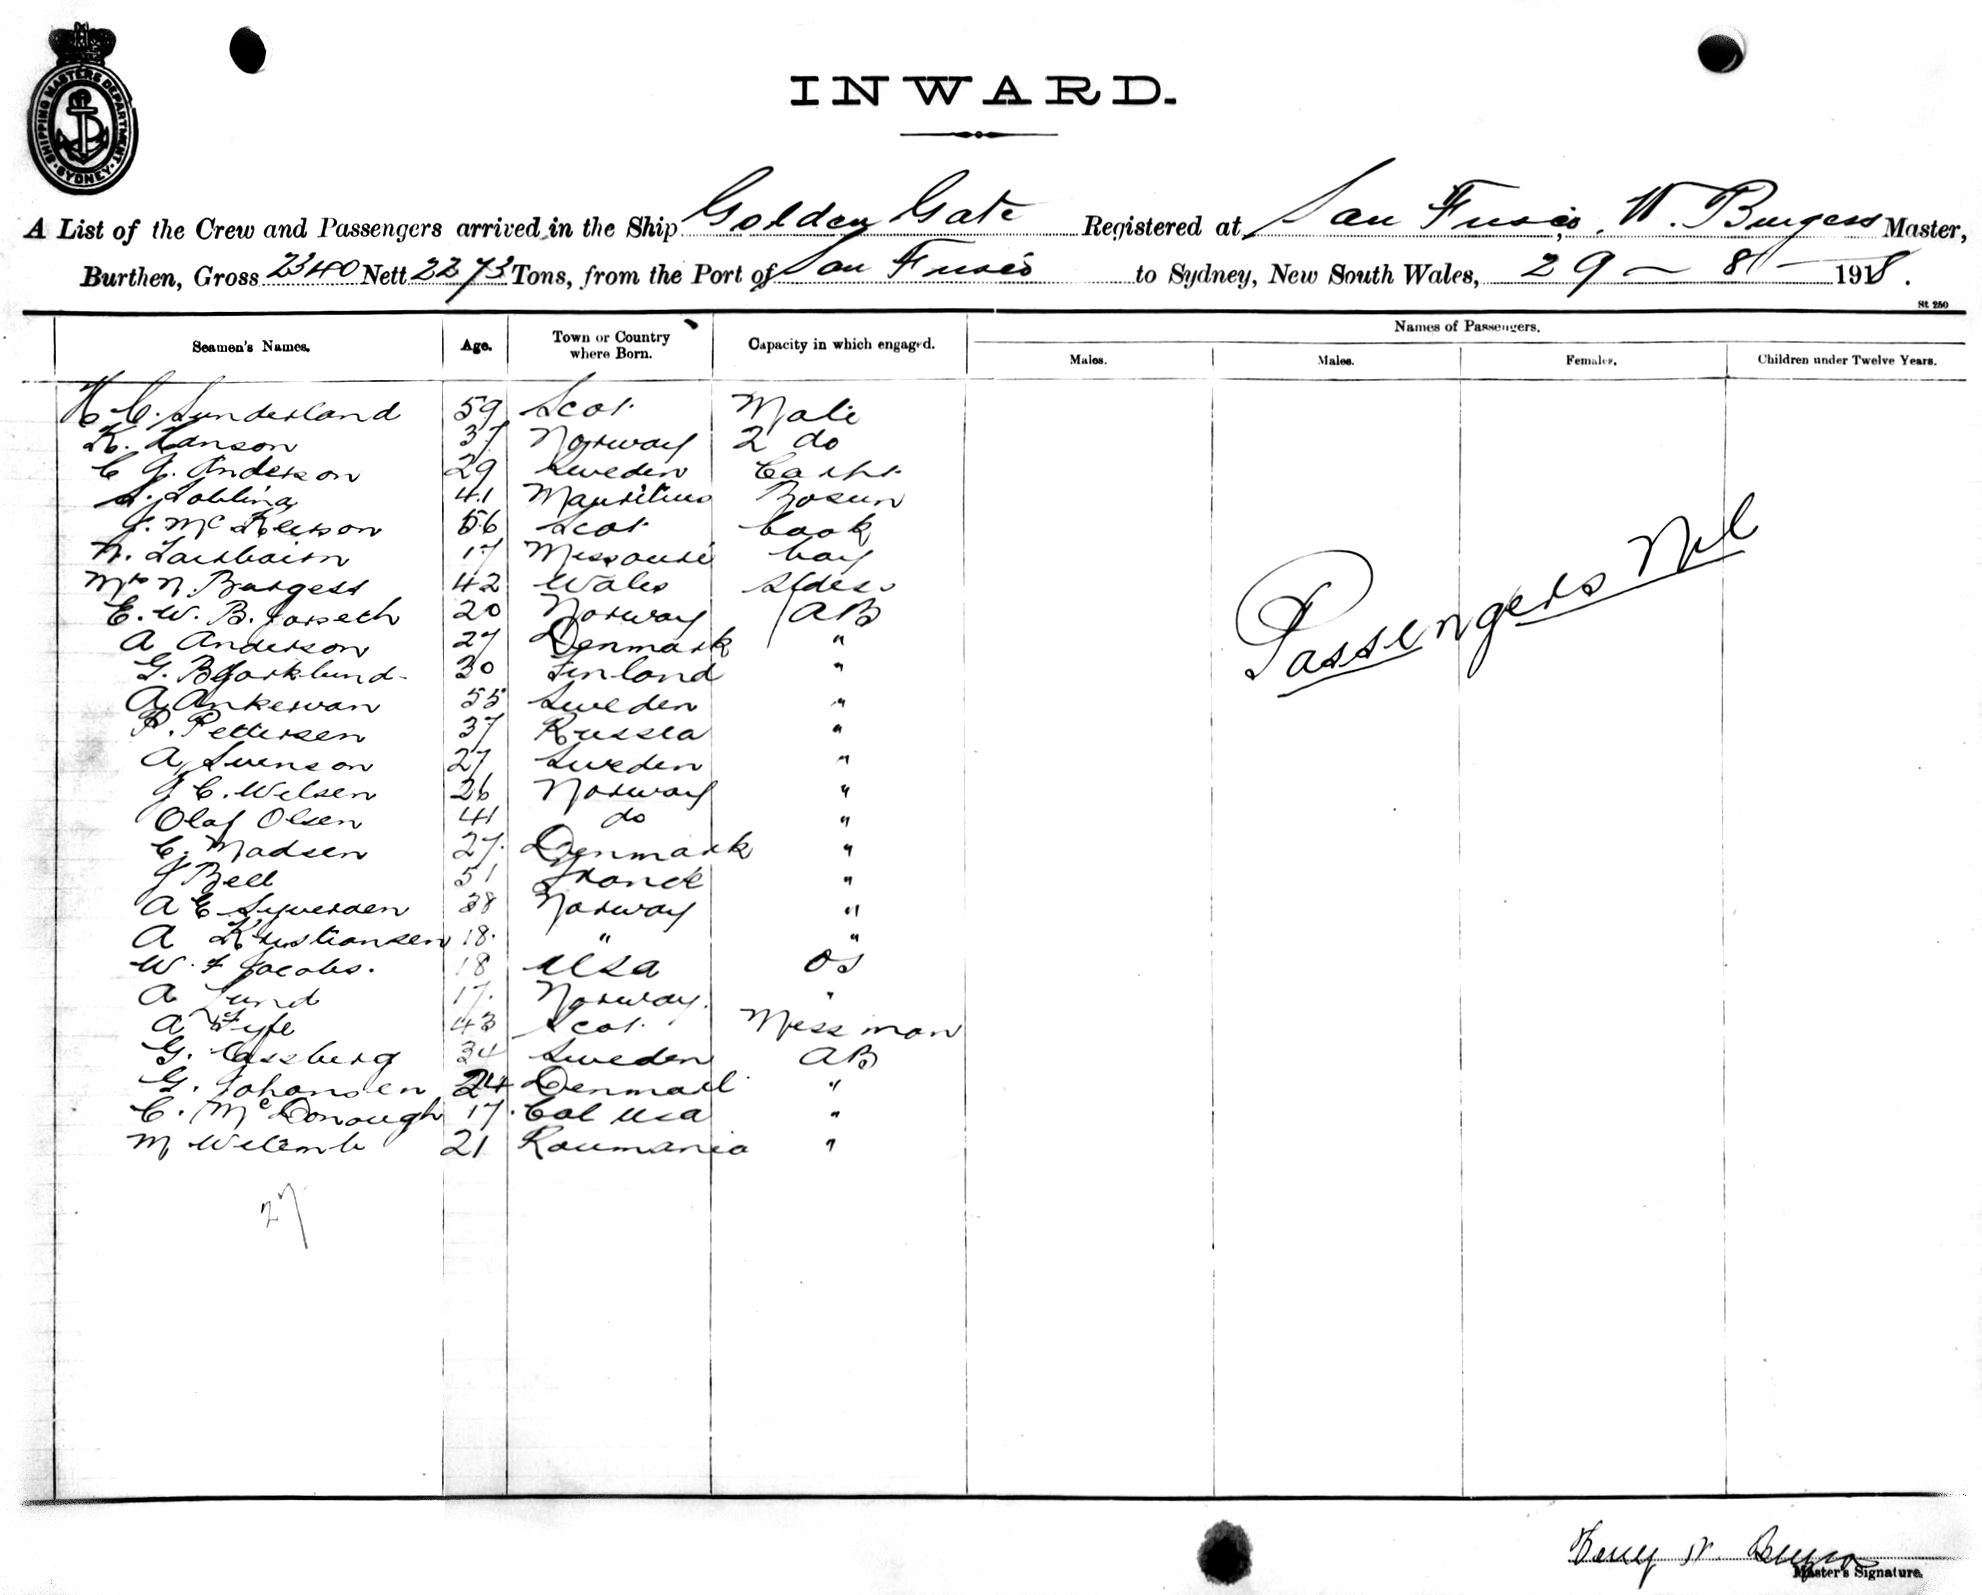 SHIPPING MASTERS DEPARTMENT SYDNEY
INWARD.
A List of the Crew and Passengers arrived in the Ship Golden Gate Registered at San Fusico, W. Burgess Master,
Burthen, Gross 2340 Nett 2273 Tons, from the Port of San Fusico to Sydney, New South Wales, 29 - 8 - 1918.
St 250
Seamen's Names. Age. Town or Country where Born. Capacity in which engaged. Names of Passengers.
Males. Males. Females. Children under Twelve Years.
C. Sunderland 59 Scot. Mate
K. Hanson 37 Norway 2 do
C G. Anderson 29 Sweden
41 Mauritius Bosun
56 Scot. Cook
17 Missouri boy
Mrs N. Burgess 42 Wales Stdess
E. W. B. Forseth 20 Norway AB
A Anderson 27 Denmark "
G. Bjorklund 30 Finland "
A Ankervan 55 Sweden "
P. Pettersen 37 Russia "
A Svenson 27 Sweden "
J C. Wilsen 26 Norway "
Olaf Olsen 41 do "
C. Madsen 27 Denmark "
J Bell 51 France "
A E Syversen 38 Norway "
A Kristiansen 18 " "
W. F Jacobs. 18 USA OS
A Lund 17 Norway. "
A Fyfe 43 Scot. Mess man
G. 34 Sweden AB
G. Johansen 24 Denmark "
C. McDonough 17 Cal USA "
M 21 Roumania "
27
Passengers Nil
Master's Signature.